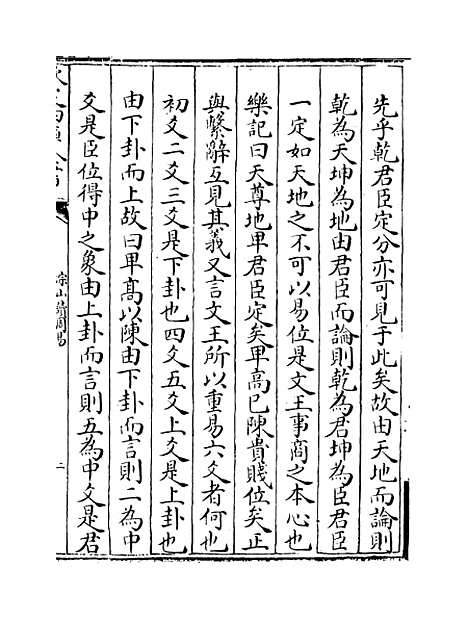 先乎乾君臣定分亦可見于此矣故由天地而論則
乾為天坤為地由君臣而論則乾為君坤為臣君臣
一定如天地之不可以易位是文王事商之本心也
樂記曰天尊地卑君臣定矣卑高已陳貴賤位矣正
與繫辭互見其義又言文王所以重易六爻者何也
初爻二爻三爻是下卦也四爻五爻上爻是上卦也
由下卦而上故曰卑高以陳由下卦而言則二為中
爻是臣位得中之象由上卦而言則五為中爻是君
淙山讀周易
二